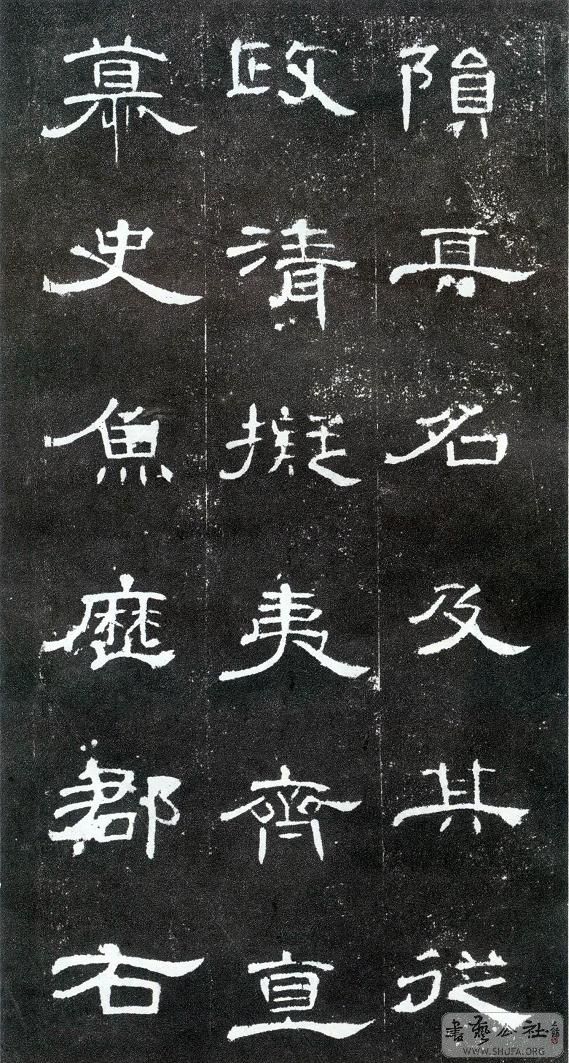 隕其名及其從
政清擬夷齊直
慕史魚歷郡右
書藝公社
WWW.SHUFA.ORG